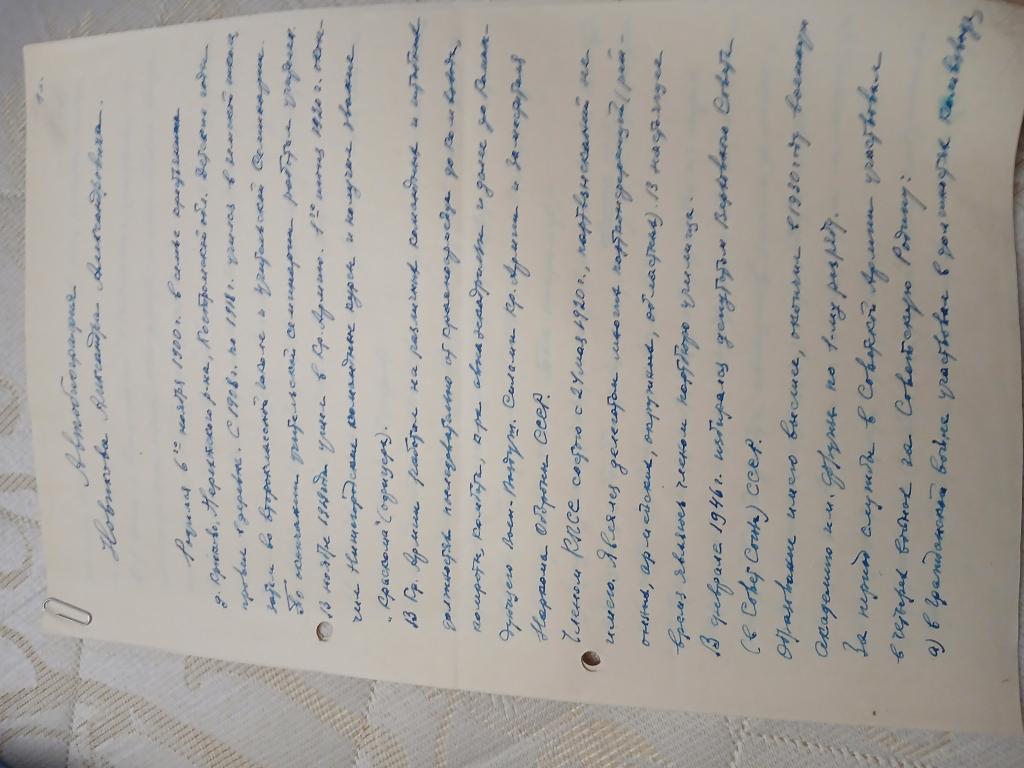 1.
Автобиография
Новикова Александра Александровича.
Родился 6го ноября 1900г. в семье крестьянина
д. Крюково, Нерехтского р-на, Костромской обл. Детские годы
провел в деревне. С 1908г. по 1918г. учился в сельской школе,
затем во второклассной школе и учительской семинарии.
По окончании учительской семинарии работал учителем.
В ноябре 1919года ушел в Кр. Армию. 1го июня 1920г. окон-
чил Нижегородские командные курсы и получил звание
"Краском" (офицер).
В Кр. Армии работал на различных командных и штабных
должностях последовательно от красноармейца до ком. взвода,
комроты, комбата, и даже до Коман-
дующего Воен. Воздуш. Силами Кр. Армии и заместителя
Наркома Обороны СССР.
Членом КПСС состою с 24 мая 1920г., партвзысканий не
имею. Являлся делегатом многих партконференций (рай-
онные, армейские, окружные, областные). В настоящее
время являюсь членом партбюро училища.
В феврале 1946г. избирался депутатом Верховного Совета
(в Совет Союза) СССР.
Образование имею высшее, окончил в 1930 году военную
академию им. Фрунзе по 1-му разряду.
За период службы в Советской Армии участвовал
в четырех войнах за Советскую Родину:
а) в гражданской войне участвовал в должности